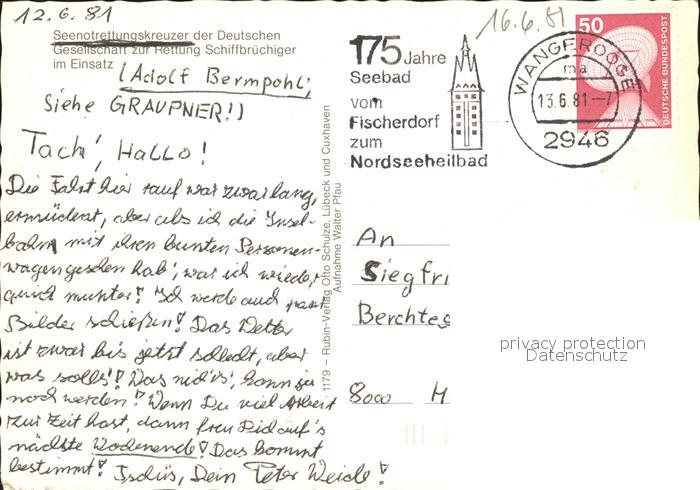 12.6.81
16.6.81
Seenotrettungskreuzer der Deutschen
Gesellschaft zur Rettung Schiffbrüchiger
im Einsatz
(Adolf Bermpohl,
siehe GRAUPNER!)
Tach', Hallo!
Die Fahrt hier rauf war zwar lang,
ermüdend, aber als ich die Insel-
bahn mit ihren bunten Personen-
wagen gesehen hab', war ich wieder
quick munter! Ich werde auch paar
Bilder schießen! Das Wetter
ist zwar bis jetzt schlecht, aber
was solls'! Was nich is', kann ja
noch werden! Wenn Du viel Arbeit
zur Zeit hast, dann freu Dich auf's
nächste Wochenende! Das kommt
bestimmt! Tschüs, Dein Peter Weide!
1179 – Rubin-Verlag Otto Schulze, Lübeck und Cuxhaven
Aufnahme Walter Pfau
175 Jahre
Seebad
vom
Fischerdorf
zum
Nordseeheilbad
WANGEROOGE
ma
13.6.81-7
2946
50
DEUTSCHE BUNDESPOST
An
Siegfri
Berchtes
8000 M
privacy protection
Datenschutz